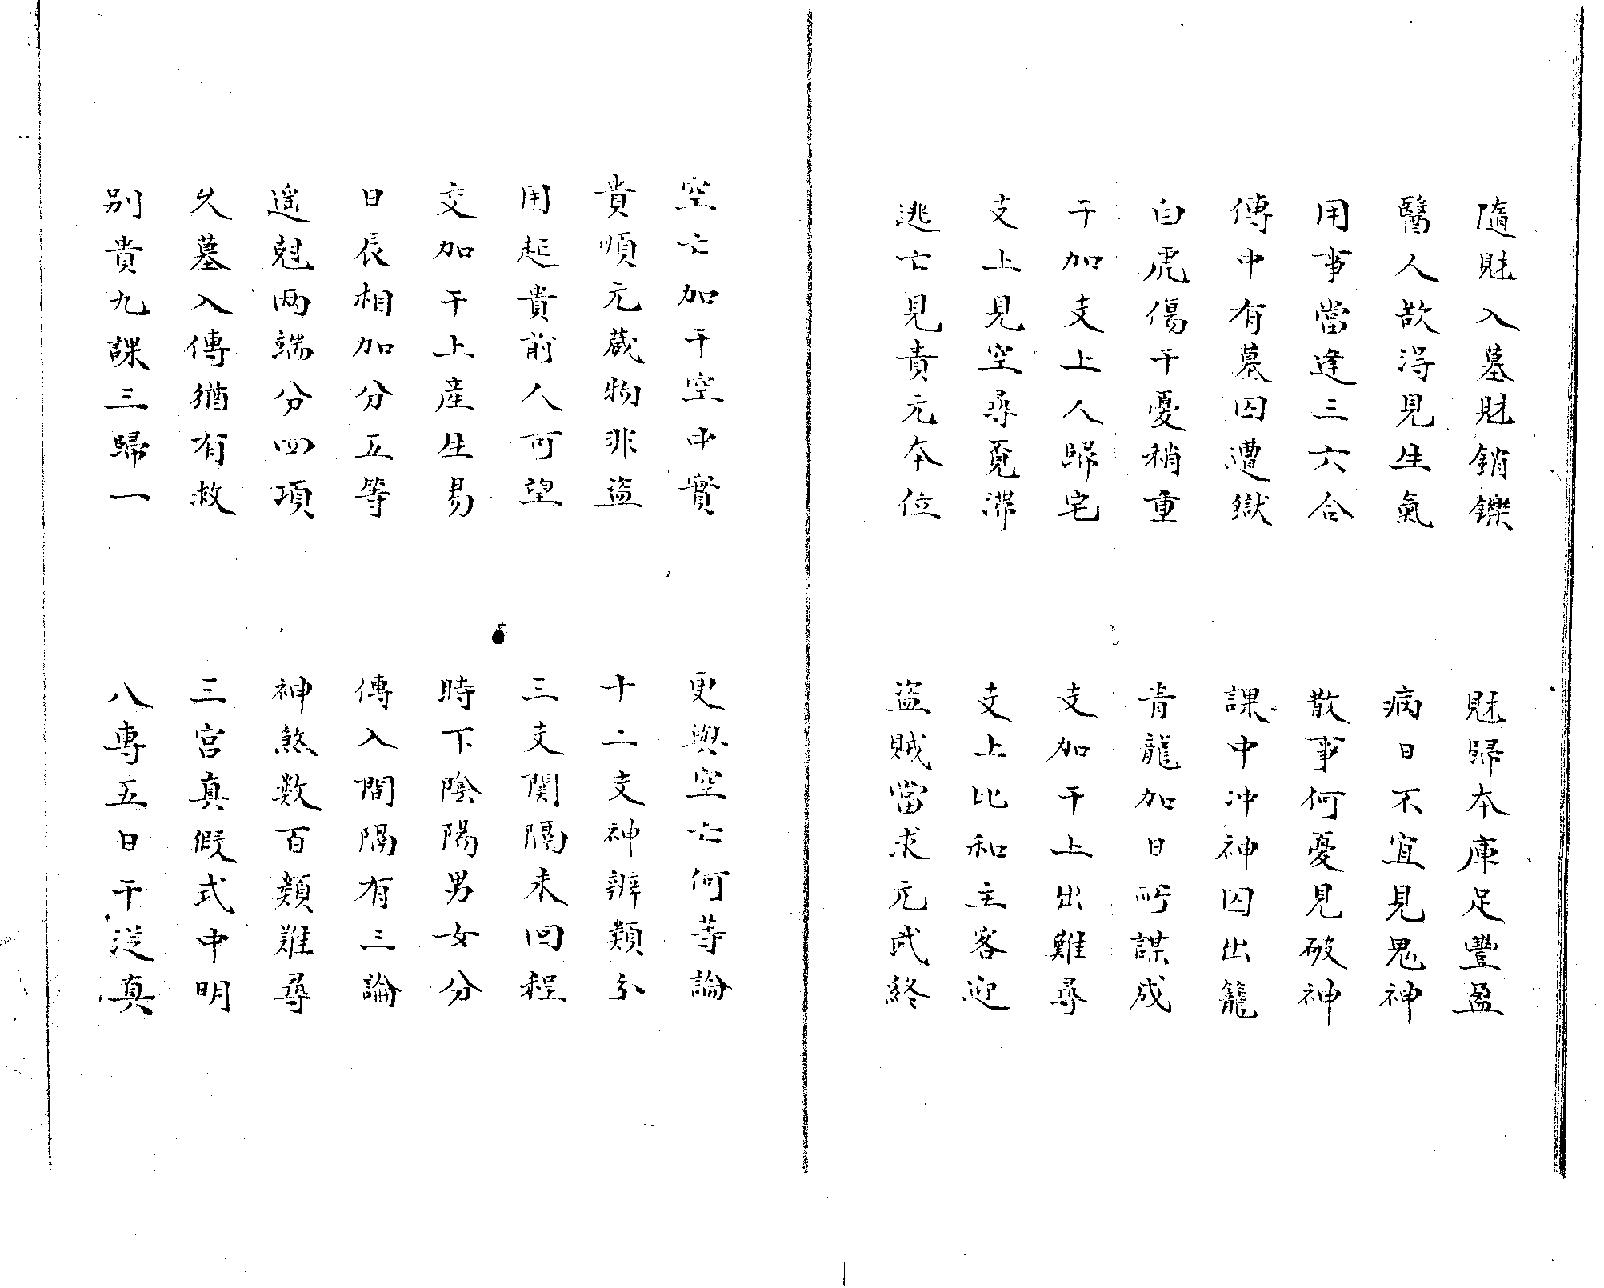 隨財入墓財銷鑠 財歸本庫足豐盈
醫人欲得見生氣 病日不宜見鬼神
用事當逢三六合 散事何憂見破神
傳中有墓囚遭獄 課中冲神囚出籠
白虎傷干憂稍重 青龍加日所謀成
干加支上人歸宅 支加干上出難尋
支上見空尋覓滞 支上比和主客迎
逃亡見責元本位 盜賊當求元武終
空亡加干空中實 更與空亡何等論
貴順元蔵物非盜 十二支神辨類分
用起貴前人可望 三支関隔未回程
交加干上産生易 時下陰陽男女分
日辰相加分五等 傳入間隔有三論
遥尅两端分四項 神煞数百類難尋
久墓入傳猶有救 三宮真假式中明
别貴九課三歸一 八専五日干從真